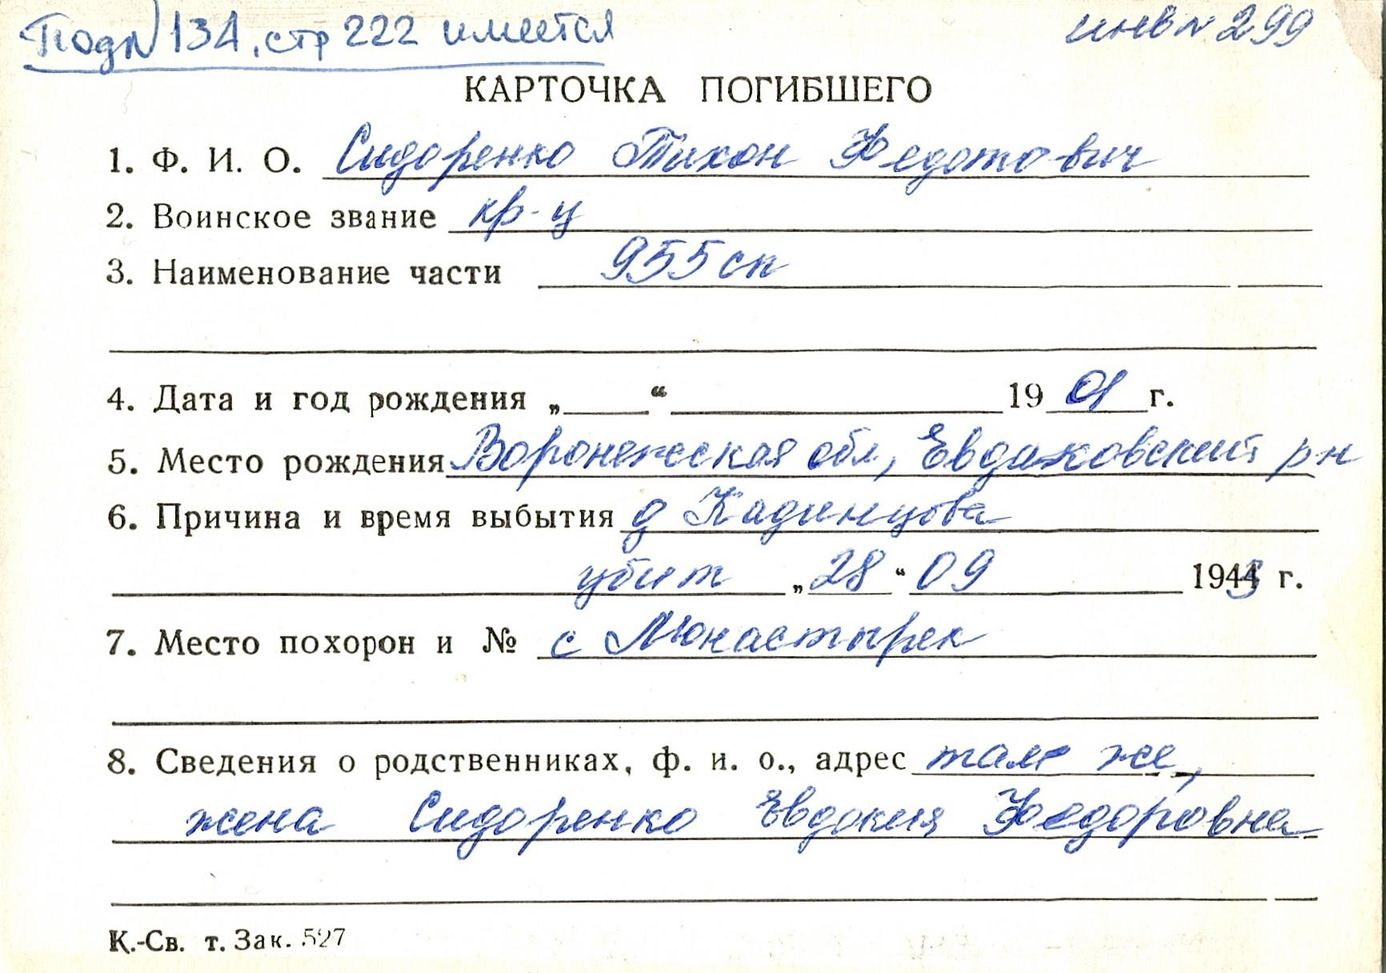 Под N 134, стр 222 имеется
инв N 299
КАРТОЧКА ПОГИБШЕГО
1. Ф. И. О. Сидоренко Тихон Федотович
2. Воинское звание кр-ц
3. Наименование части 955 сп
4. Дата и год рождения „ “ 19 01 г.
5. Место рождения Воронежская обл, Евдаковский рн
6. Причина и время выбытия д Кадинцова
убит „ 28 “ 09 1943 г.
7. Место похорон и № с Монастырек
8. Сведения о родственниках, ф. и. о., адрес там же,
жена Сидоренко Евдокия Федоровна
К.-Св. т. Зак. 527